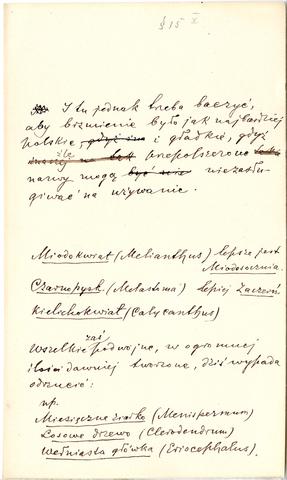 § 15 x
I tu jednak trzeba baczyć,
aby brzmienie było jak najbardziej
polskie, i gładkie, gdyż
źle przepolszczone
nazwy mogą niezasłu-
giwać na używanie.
Miodokwiat (Melianthus) lepsze jest
Miodosocznia.
Czarnopysk (Melastoma) lepiej Zaczerń
Kielichokwiat (Calycanthus)
zaś
Wszelkie podwójne, w ogromnej
ilości dawniej tworzone, dziś wypada
odrzucić:
np.
Miesięczne ziarko (Menispermum)
Losowe drzewo (Clerodendrum)
Wełniasta główka (Eriocephalus).